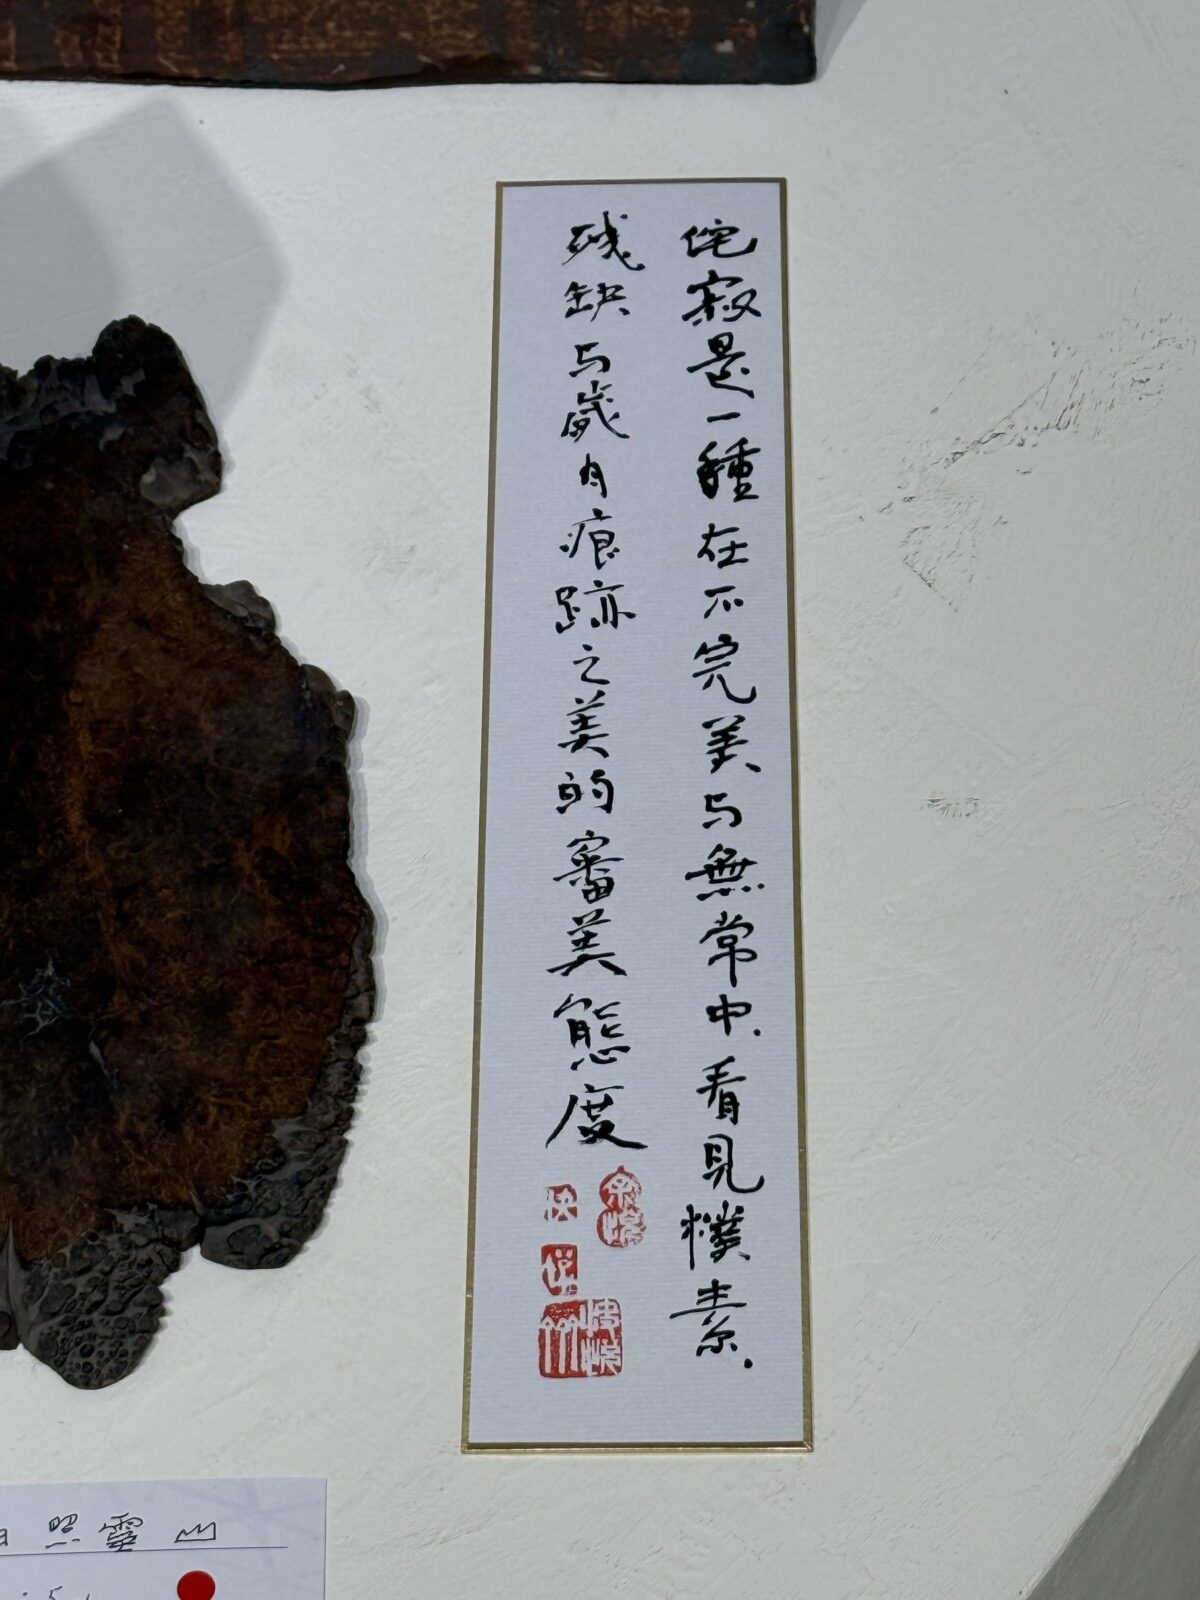 侘寂是一種在不完美与無常中.看見樸素.
残缺与歲月痕跡之美的審美態度
照靈山